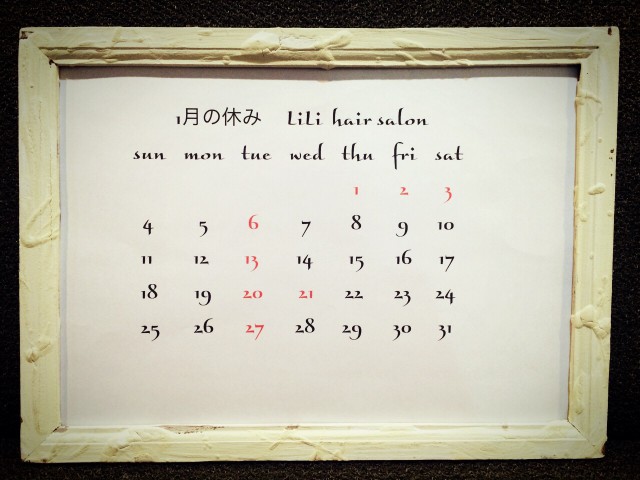 1月の休み LiLi hair salon
sun mon tue wed thu fri sat
1 2 3
4 5 6 7 8 9 10
11 12 13 14 15 16 17
18 19 20 21 22 23 24
25 26 27 28 29 30 31